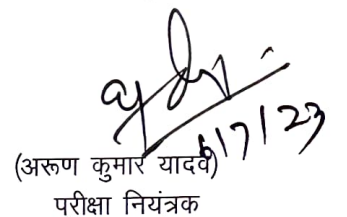 6/7/23
(अरूण कुमार यादव)
परीक्षा नियंत्रक